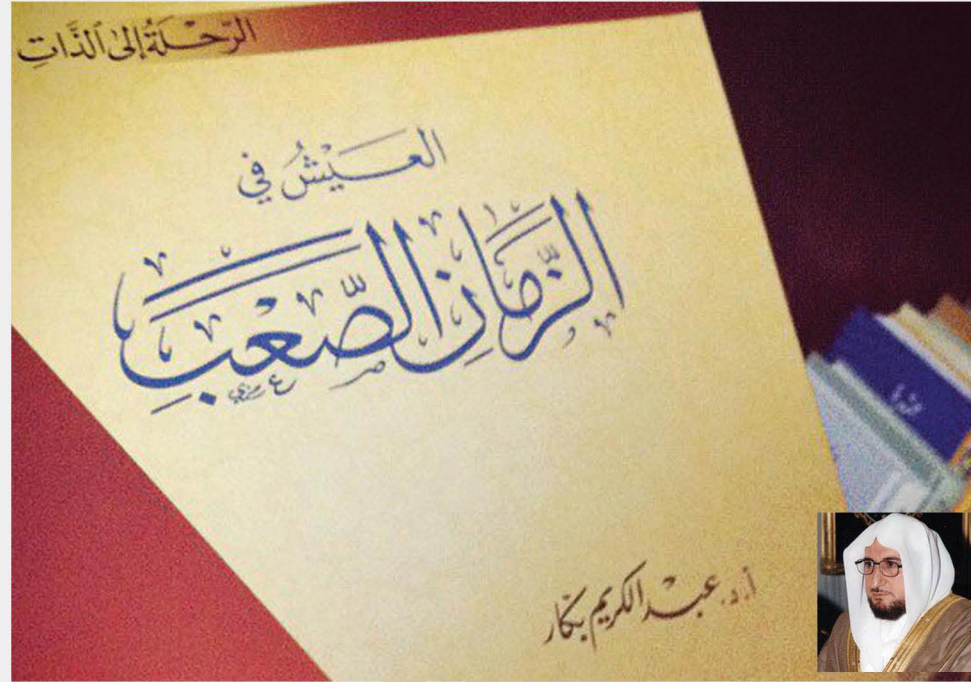 الرّحلَةُ إلى الذَّاتِ
العَيْشُ في
الزَّمانِ الصَّعْبِ
أ.د. عبد الكريم بكّار